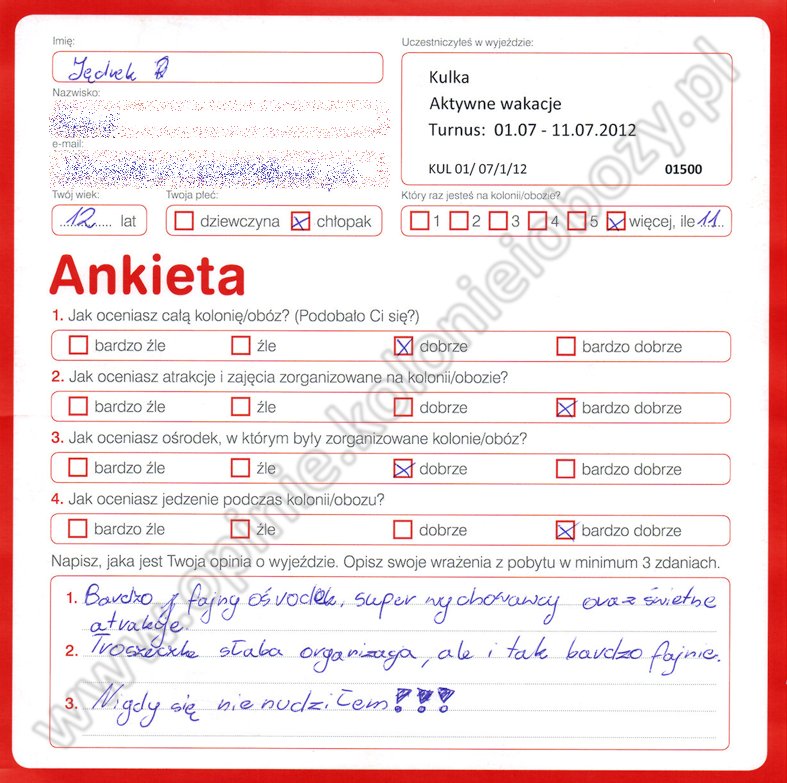 Imię:
Jędrek B
Uczestniczyłeś w wyjeździe:
Kulka
Aktywne wakacje
Turnus: 01.07 - 11.07.2012
KUL 01/ 07/1/12 01500
Nazwisko:
e-mail:
Twój wiek:
12 lat
Twoja płeć:
dziewczyna chłopak
Który raz jesteś na kolonii/obozie?
1 2 3 4 5 więcej, ile 11
Ankieta
1. Jak oceniasz całą kolonię/obóz? (Podobało Ci się?)
bardzo źle źle dobrze bardzo dobrze
2. Jak oceniasz atrakcje i zajęcia zorganizowane na kolonii/obozie?
bardzo źle źle dobrze bardzo dobrze
3. Jak oceniasz ośrodek, w którym były zorganizowane kolonie/obóz?
bardzo źle źle dobrze bardzo dobrze
4. Jak oceniasz jedzenie podczas kolonii/obozu?
bardzo źle źle dobrze bardzo dobrze
Napisz, jaka jest Twoja opinia o wyjeździe. Opisz swoje wrażenia z pobytu w minimum 3 zdaniach.
1. Bardzo fajny ośrodek, super wychowawcy oraz świetne
atrakcje.
2. Troszeczkę słaba organizaga, ale i tak bardzo fajnie.
3. Nigdy się nie nudziłem!!!
www.opinie.kolonieiobozy.pl